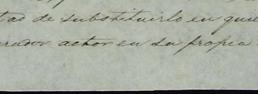 tad de substituirlo en quie
curador actor en su propia